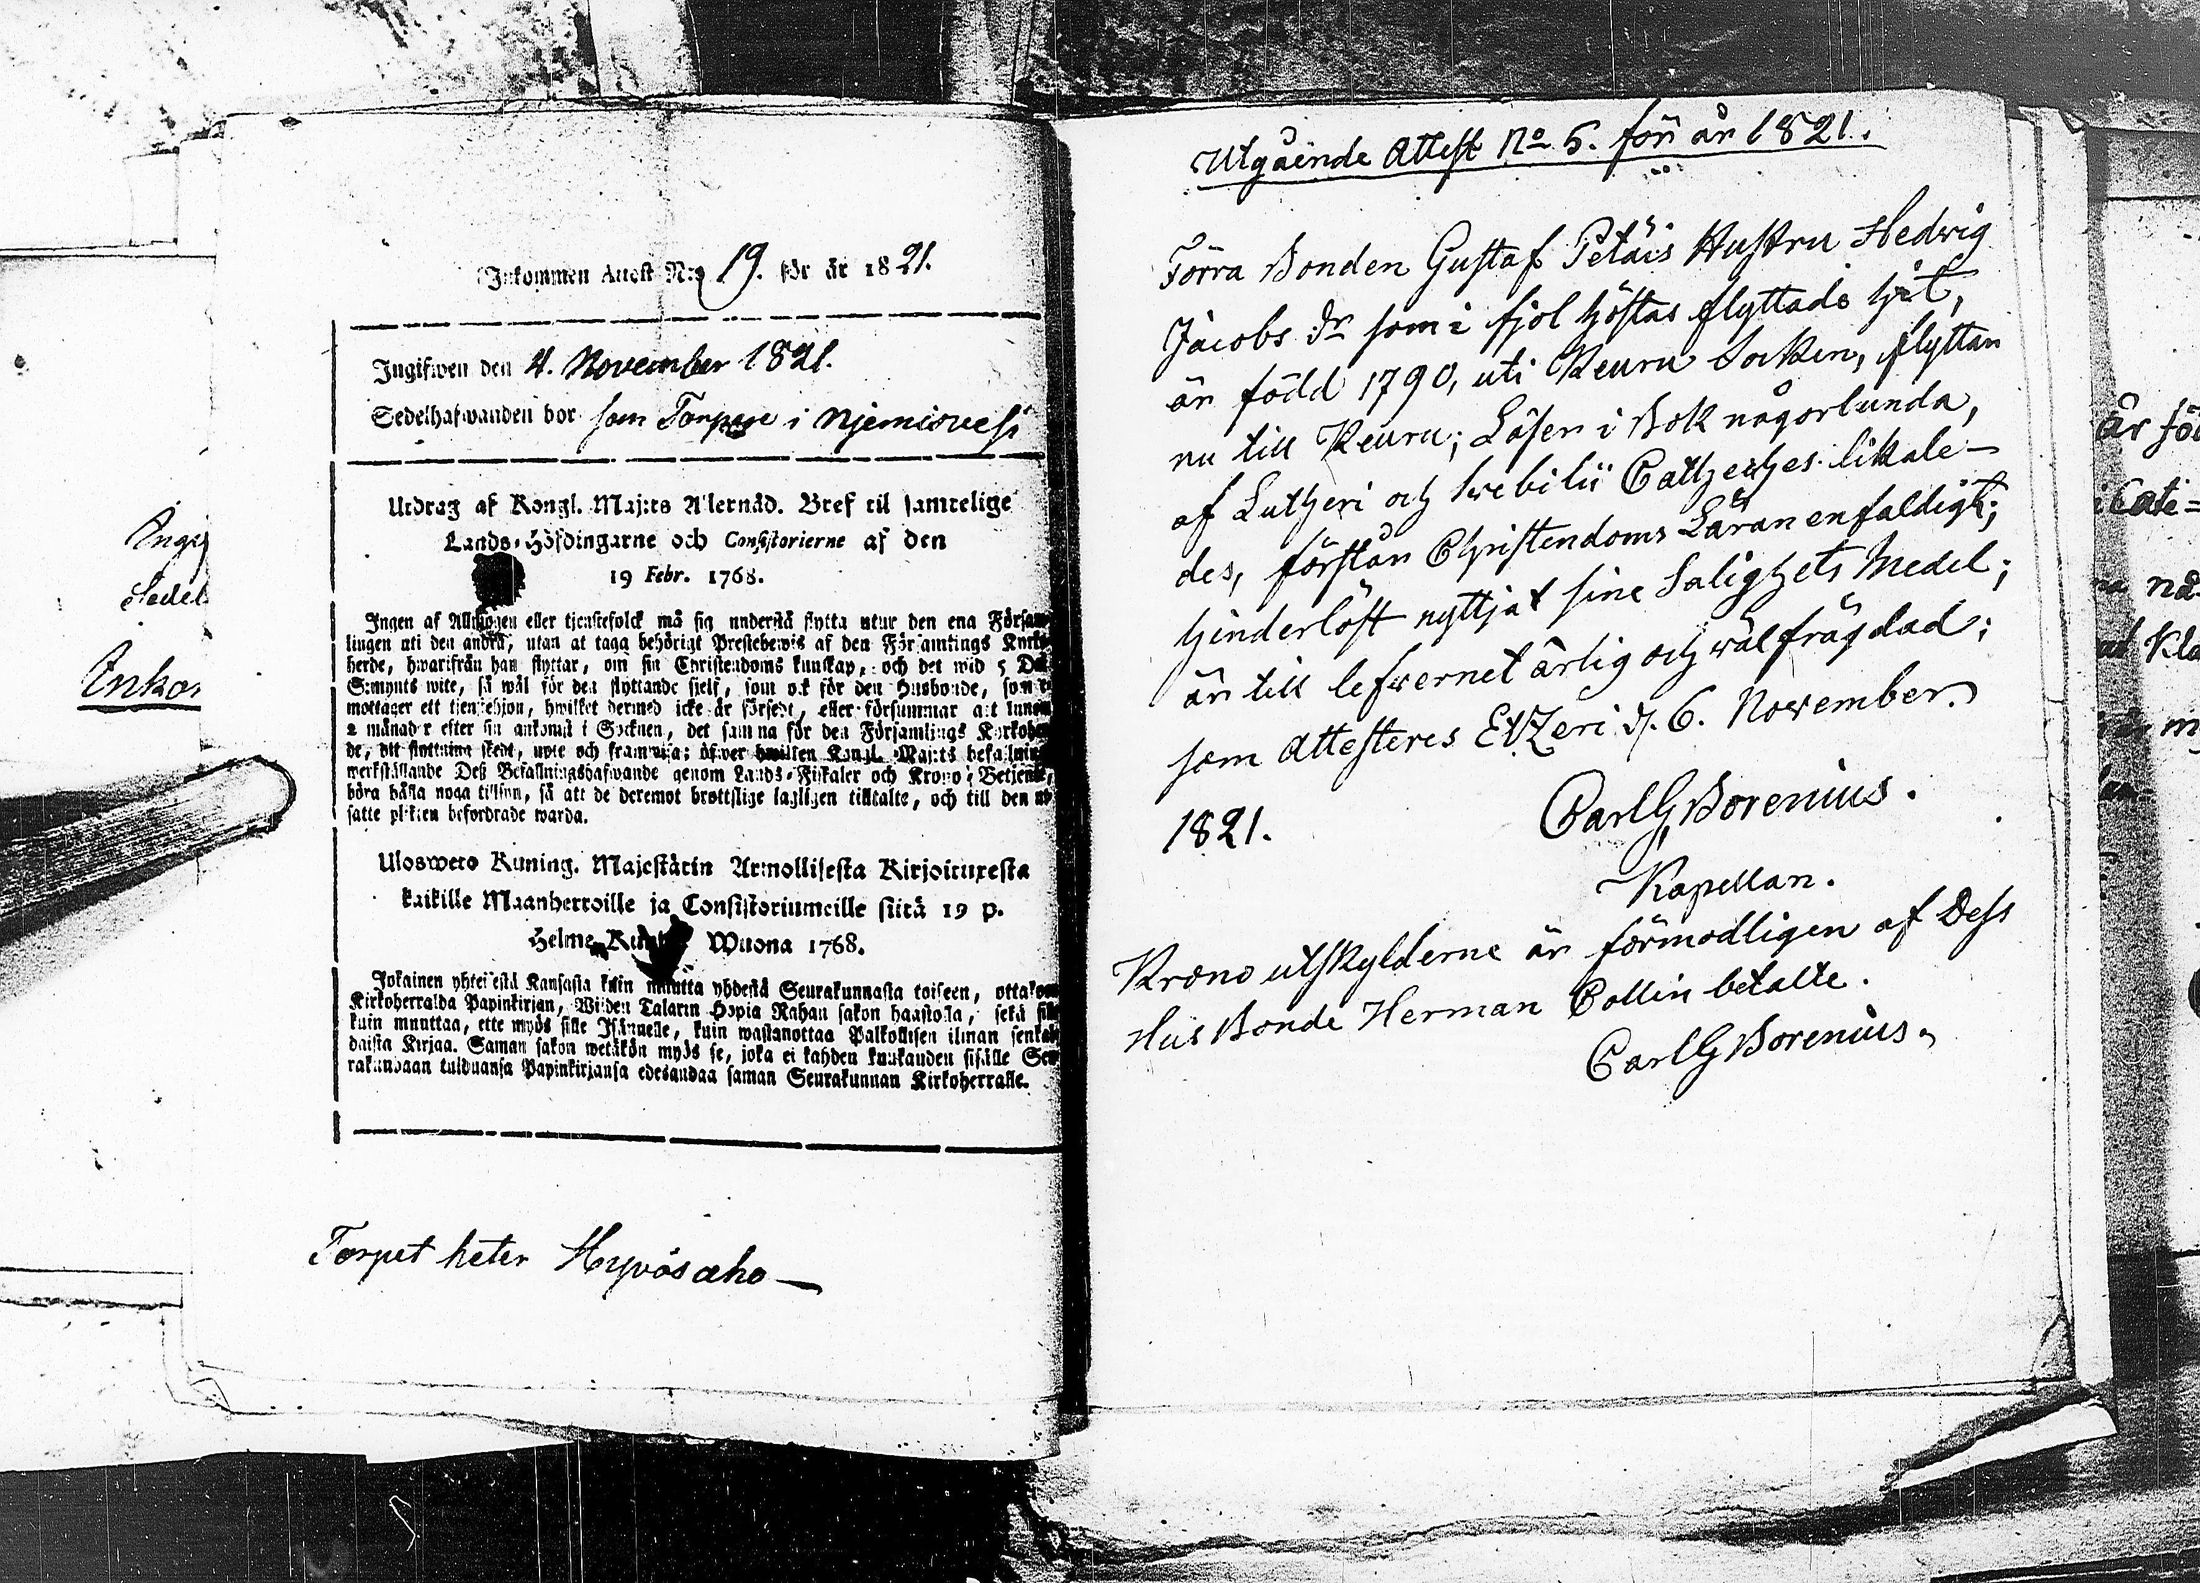 Ingif
Sedel
Inkom
Inkommen Attest N:o 19. för år 1821.
Ingifwen den 4. November 1821.
Sedelhafwanden bor som Torpare i Njemisvesi
Utdrag af Kongl. Maj:ts Allernåd. Bref til samtelige
Lands-Höfdingarne och Consistorierne af den
19 Febr. 1768.
Ingen af Allmogen eller tjenstefolck må sig understå flytta utur den ena Försam
lingen uti den andra, utan at taga behörigt Prestebewis af den Församlings Kyrko
herde, hwarifrån han flyttar, om sin Christendoms kunskap, och det wid 5 Dal
S:mynts wite, så wäl för den flyttande sielf, som ock för den Husbonde, som e
mottager ett tjenstehjon, hwilket dermed icke är försedt, eller försummar att innom
2 månader efter sin ankomst i Socknen, det samma för den Församlings Kyrkoher
de, dit flyttning skedt, upte och framwisa; öfwer hwilken Kongl. Maj:ts befallning
werkställande Deß Befallningshafwande genom Lands-Fiskaler och Krono-Betjente,
böra hålla noga tillsyn, så att de deremot brottslige lagligen tilltalte, och till den ut
satte plikten befordrade warda.
Ulosweto Kuning. Majestätin Armollisesta Kirjoituxesta
kaikille Maanherroille ja Consistoriumeille siitä 19 p.
Helme Wuona 1768.
Jokainen yhteisestä Kansasta kuin muutta yhdestä Seurakunnasta toiseen, ottakon
Kirkoherralda Papinkirjan, Wiiden Talarin Hopia Rahan sakon haastolla, sekä sille
kuin muuttaa, ette myös sille Isännelle, kuin wastanottaa Palkollisen ilman senkal
daista Kirjaa. Saman sakon wetäkön myös se, joka ei kahden kuukauden sisälle Seu
rakundaan tulduansa Papinkirjansa edesandaa saman Seurakunnan Kirkoherralle.
Torpet heter Hyvösaho
Utgående Attest No 5. för år 1821.
Förra Bonden Gustaf Petäis Hustru Hedvig
Jacobs dr som i fjol höstas flyttade hit,
är född 1790, uti Keuru Socken, flyttar
nu till Keuru; Läser i Bok någorlunda,
af Lutheri och Swebilii Catheches likale-
des, förstår Christendoms Läran enfaldigt;
hinderlöst nyttjat sine Salighets Medel;
är till lefwernet ärlig och wälfrägdad;
som Attesteres Etzeri d. 6. November
1821.
Carl G Borenius.
Kapellan.
Krono utskylderne är förmodligen af Dess
Hus Bonde Herman Collin betalte.
Carl G Borenius.
är föd
i Cate=
nå
at Kla